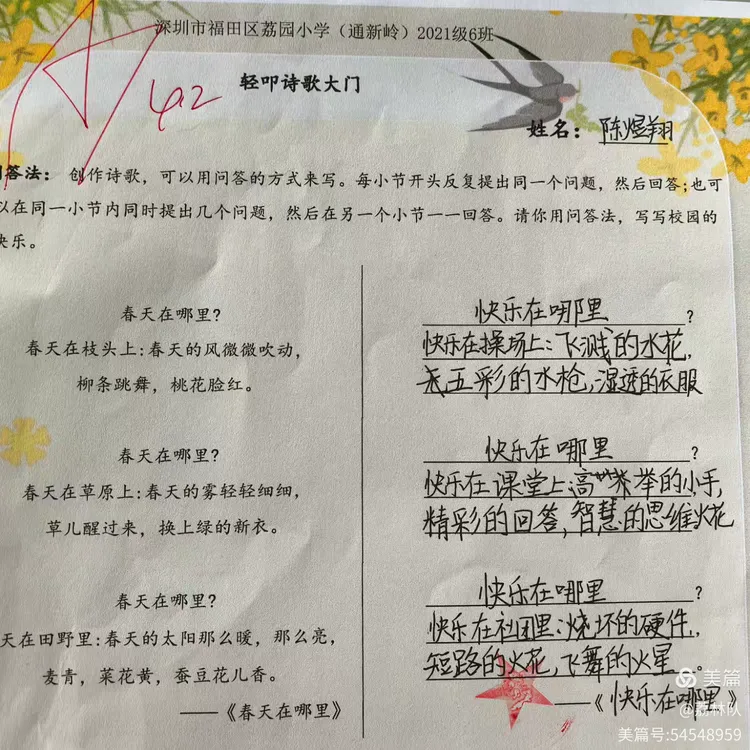 深圳市福田区荔园小学（通新岭）2021级6班
A 42
轻叩诗歌大门
姓名：陈煜翔
问答法：创作诗歌，可以用问答的方式来写。每小节开头反复提出同一个问题，然后回答；也可
以在同一小节内同时提出几个问题，然后在另一个小节一一回答。请你用问答法，写写校园的
快乐。
春天在哪里？
春天在枝头上：春天的风微微吹动，
柳条跳舞，桃花脸红。
春天在哪里？
春天在草原上：春天的雾轻轻细细，
草儿醒过来，换上绿的新衣。
春天在哪里？
天在田野里：春天的太阳那么暖，那么亮，
麦青，菜花黄，蚕豆花儿香。
——《春天在哪里》
快乐在哪里？
快乐在操场上：飞溅的水花，
五彩的水枪，湿透的衣服
快乐在哪里？
快乐在课堂上：高举的小手，
精彩的回答，智慧的思维火花
快乐在哪里？
快乐在社团里：烧坏的硬件，
短路的火花，飞舞的火星。
——《快乐在哪里》
美篇
@荔林队
美篇号:54548959